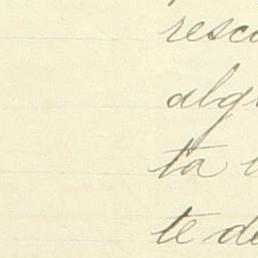 resc
alg
ta
te de